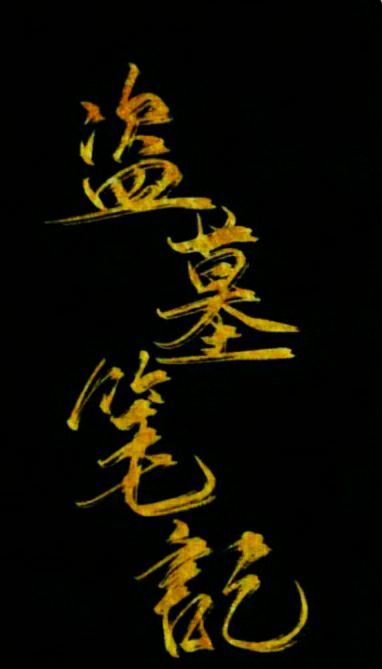 盗墓笔記